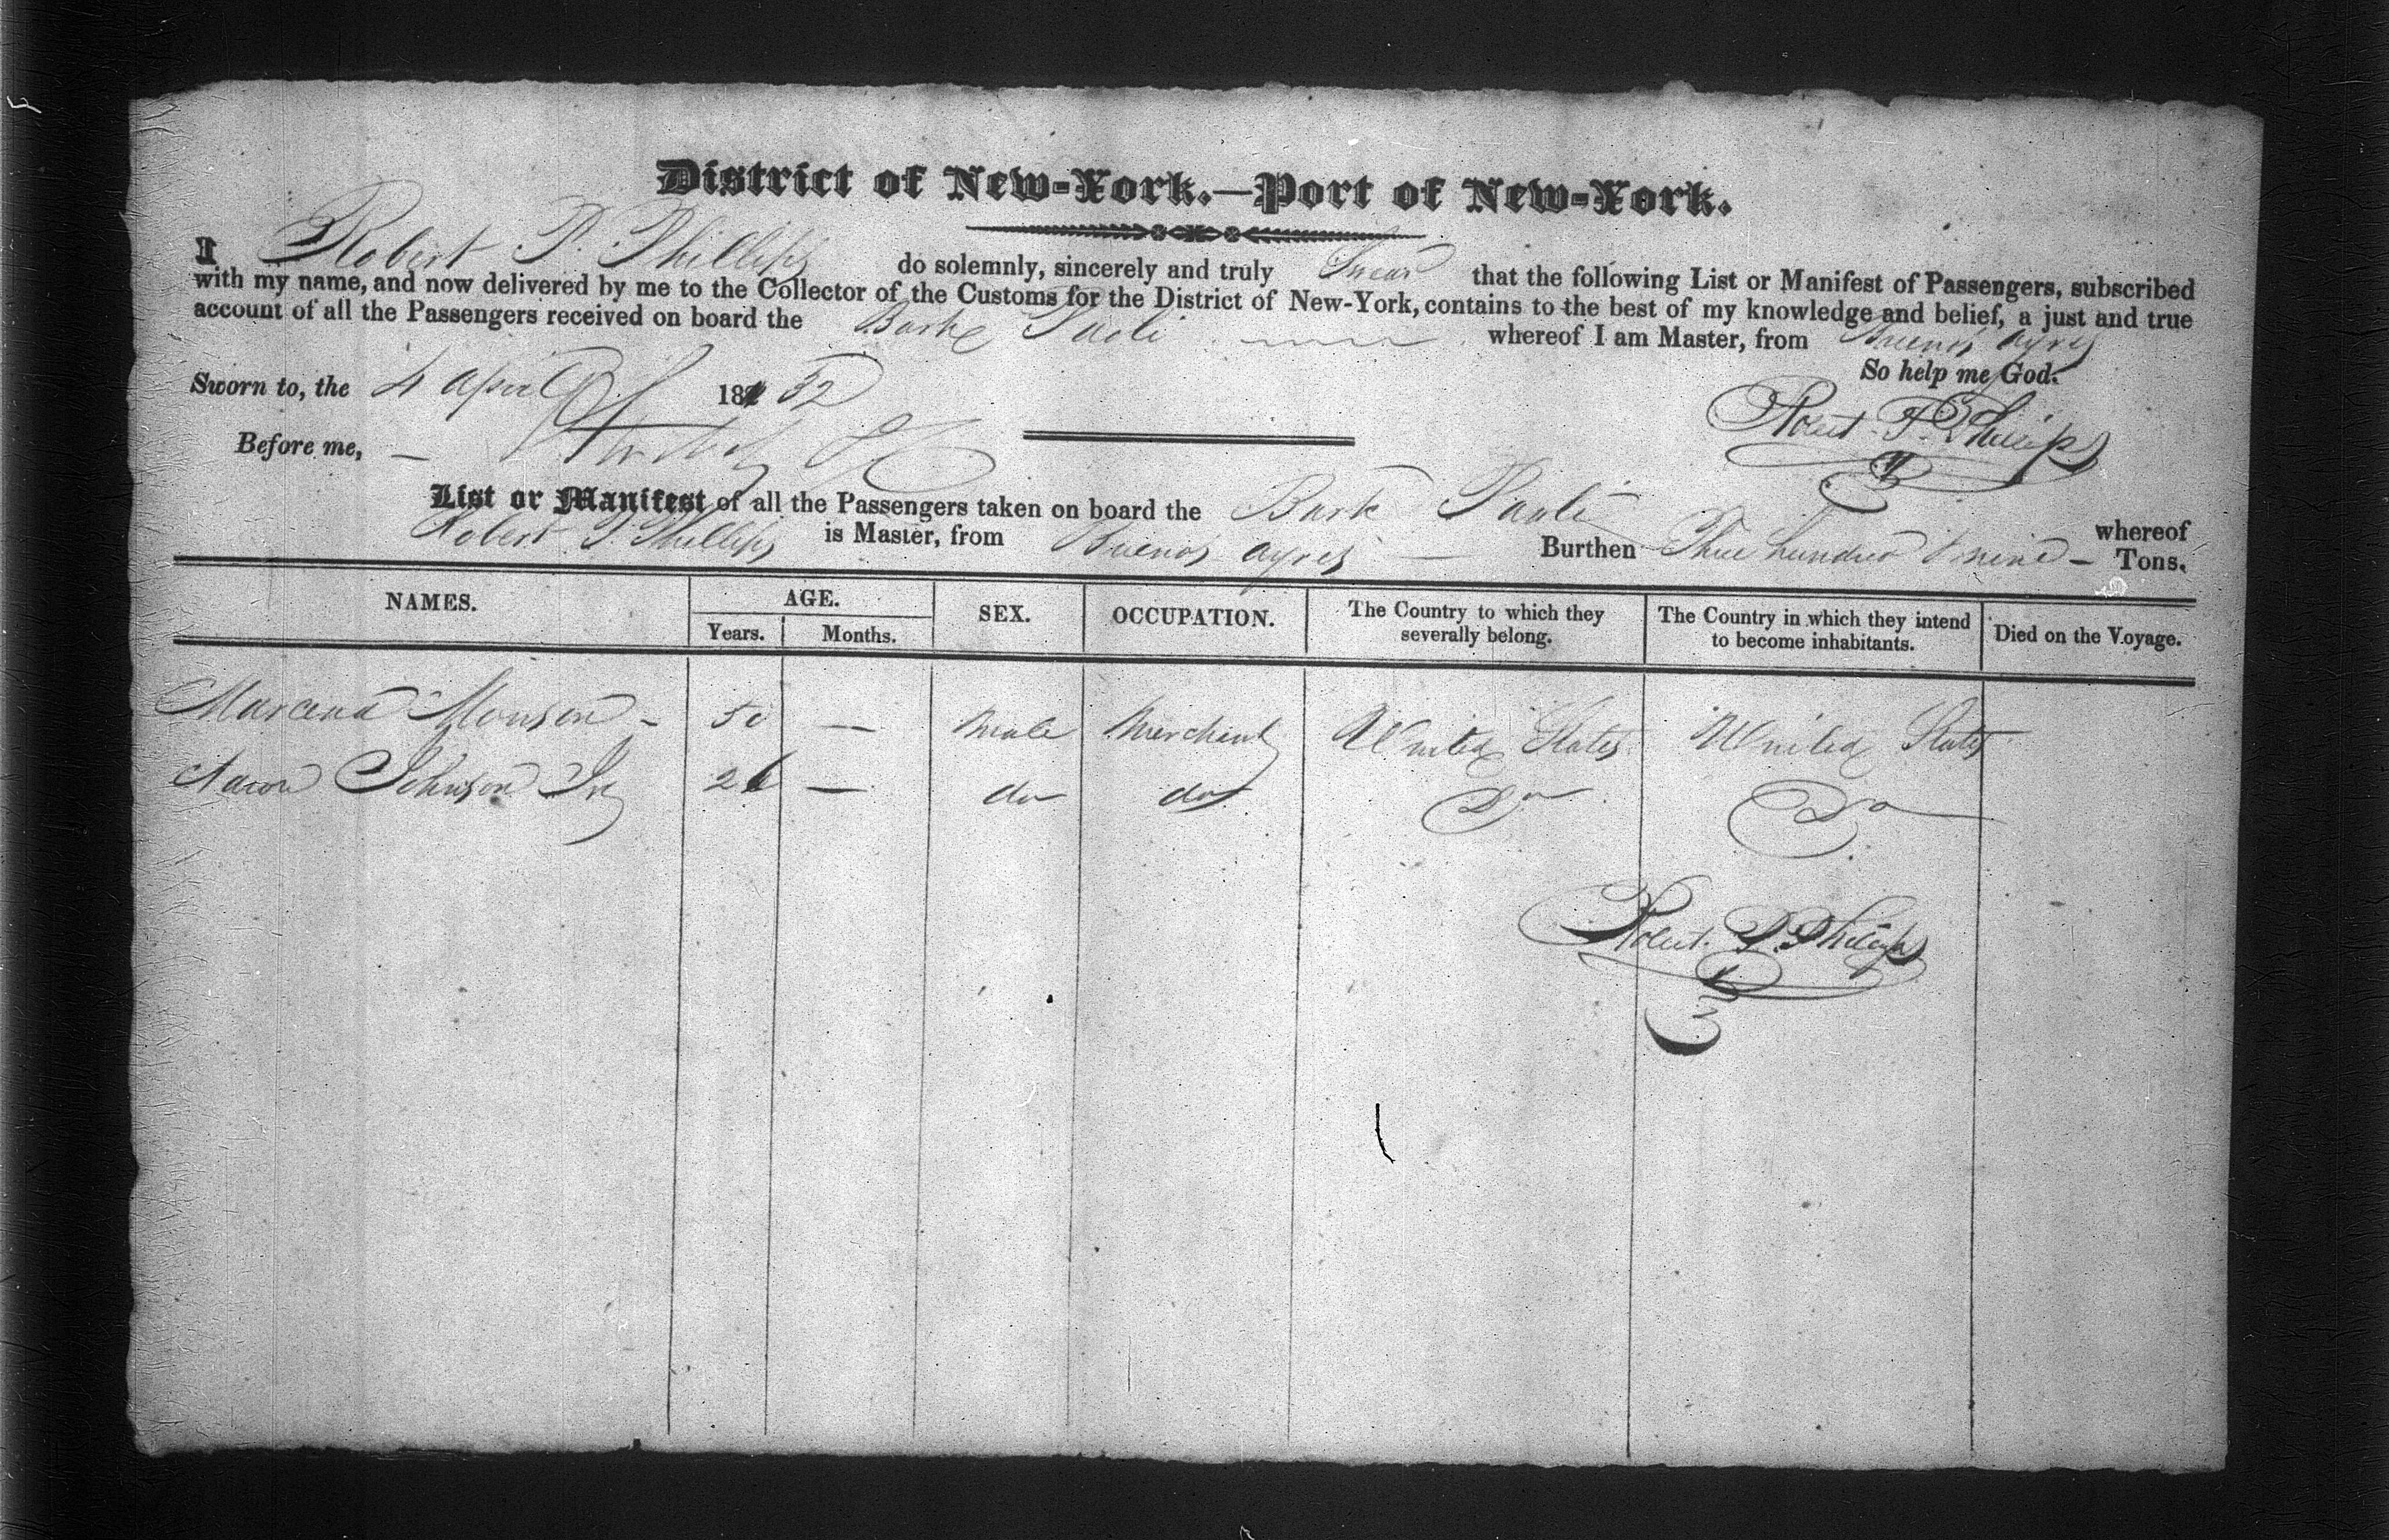 District of New-York.—Port of New-York.
I Robert P. Phillips do solemnly, sincerely and truly Swear that the following List or Manifest of Passengers, subscribed
with my name, and now delivered by me to the Collector of the Customs for the District of New-York, contains to the best of my knowledge and belief, a just and true
account of all the Passengers received on board the Barke Paoli whereof I am Master, from Buenos ayres
So help me God.
Sworn to, the 4 April 182 32
Robert P. Phillips
Before me, —
List or Manifest of all the Passengers taken on board the Bark Paoli whereof
Robert P. Phillips is Master, from Buenos ayres — Burthen Three hundred & nine — Tons.
NAMES. AGE. SEX. OCCUPATION. The Country to which they severally belong. The Country in which they intend to become inhabitants. Died on the Voyage.
Years. Months.
Marcena Monson - 50 — Male Merchant United States United States
Aaron Johnson Jr 26 — do do Do Do
Robert P. Phillips